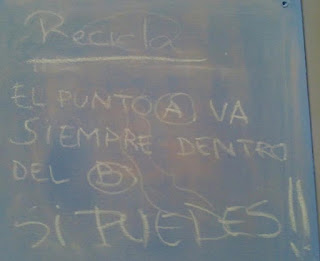 Recicla
EL PUNTO A VA
SIEMPRE DENTRO
DEL B
SI PUEDES!!